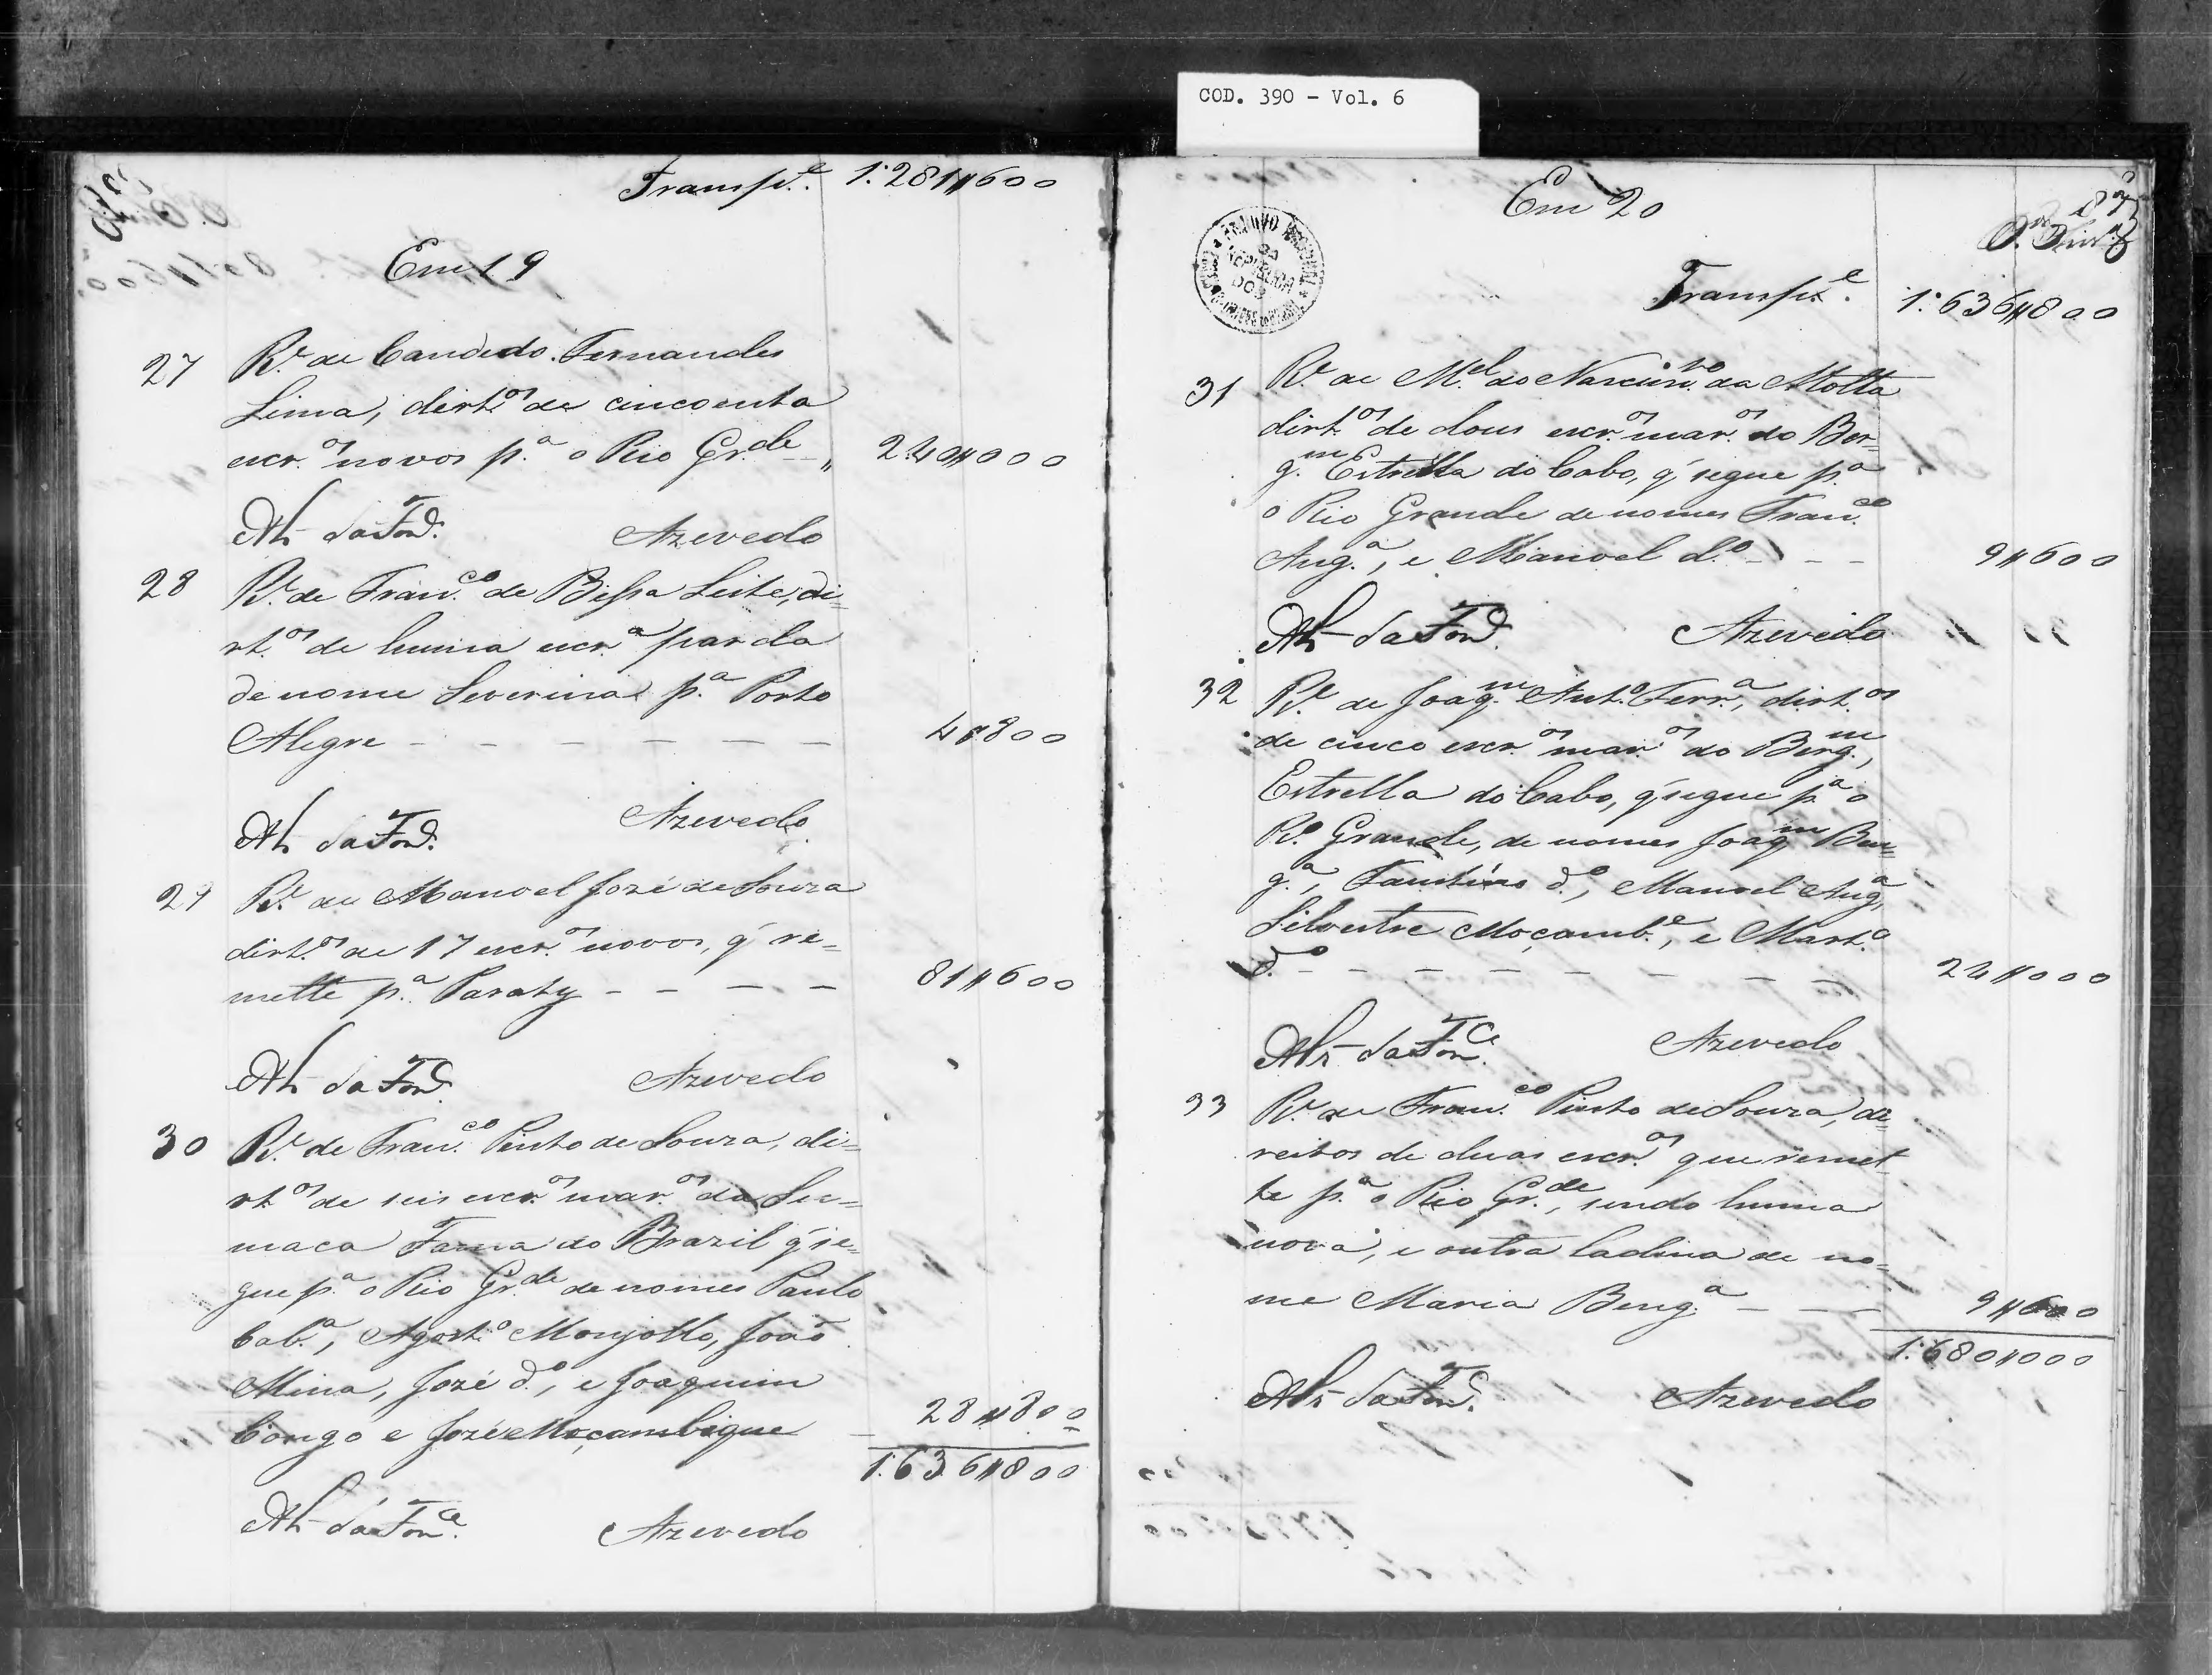 COD. 390 - Vol. 6
Transp.e 1:281#600
Em 19
27 R.e de Candido Fernandes
Lima, dirt.os de cincoenta
escr.os novos p.a o Rio Gr.de - " 240#000
Az.o da Fon.ca Azevedo
28 R.e de Fran.co de Bessa Leite, di=
rt.os de huma escr.a parda
de nome Severina p.a Porto
Alegre - - - - - - 4#800
da Fon.ca Azevedo
29 R.e de Manoel José de Souza
dirt.os de 17 escr.os novos, q' re=
mette p.a Paraty - - - - 81#600
da Fon.ca Azevedo
30 R.e de Fran.co Pinto de Souza, di=
rt.os de seis escr.os mar.os da Su=
maca Fama do Brazil q' se=
gue p.a o Rio Gr.de de nomes Paulo
Cab.a, Agost.o Monjollo, João
Mina, José d.o, e Joaquim
Congo e José Moçambique 28#800
1:636#800
da Fon.ca Azevedo
Em 20
Transp.e 1:636#800
31 R.e de M.el do Nascim.to da Motta
dirt.os de dous escr.os mar.os do Ber=
g.m Estrella do Cabo, q' segue p.a
o Rio Grande de nomes Fran.co
Ang.a, e Manoel d.o - - - 9#600
da Fon.ca Azevedo
32 R.e de Joaq.m Ant.o Ferr.a, dirt.os
de cinco escr.os mar.os do Berg.m,
Estrella do Cabo, q' segue p.a o
R.o Grande, de nomes Joaq.m Ben=
g.a, Faustino d.o, Manoel Ang.a,
Silvestre Moçamb.e, e Mart.o
d.o - - - - - - - - 24#000
da Fon.ca Azevedo
33 R.e de Fran.co Pinto de Souza, de=
reitos de duas escr.as que remet=
te p.a o Rio Gr.de, sendo huma
nova, e outra ladina de no=
me Maria Beng.a - - 9#600
1:680#000
da Fon.ca Azevedo